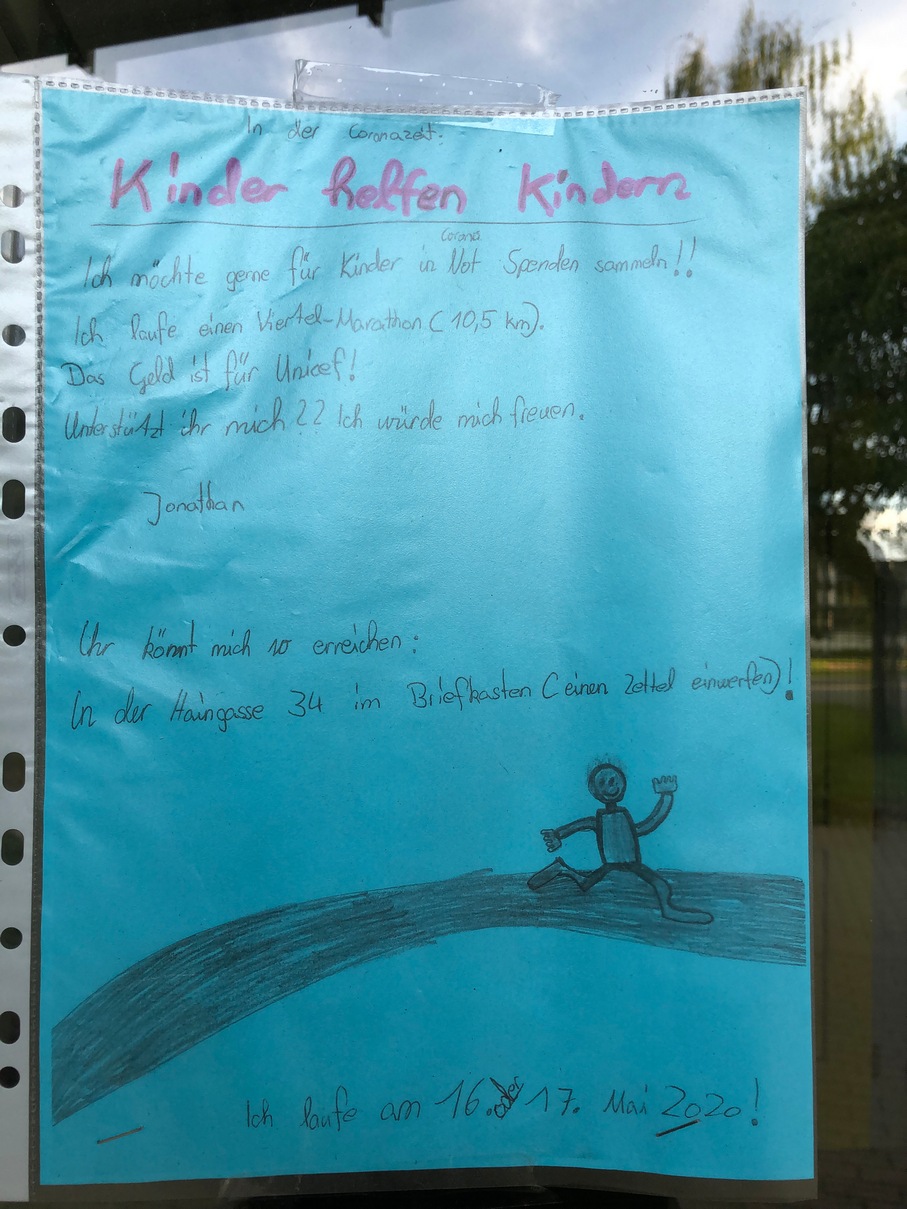 In der Coronazeit.
Kinder helfen Kindern
Corona
Ich möchte gerne für Kinder in Not Spenden sammeln!!
Ich laufe einen Viertel-Marathon (10,5 km).
Das Geld ist für Unicef!
Unterstützt ihr mich?? Ich würde mich freuen.
Jonathan
Ihr könnt mich so erreichen:
In der Haingasse 34 im Briefkasten (einen Zettel einwerfen)!
Ich laufe am 16. oder 17. Mai 2020!